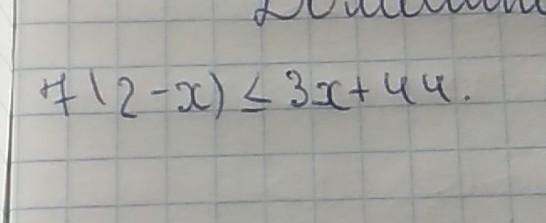 7(2-x) ≤ 3x+44.